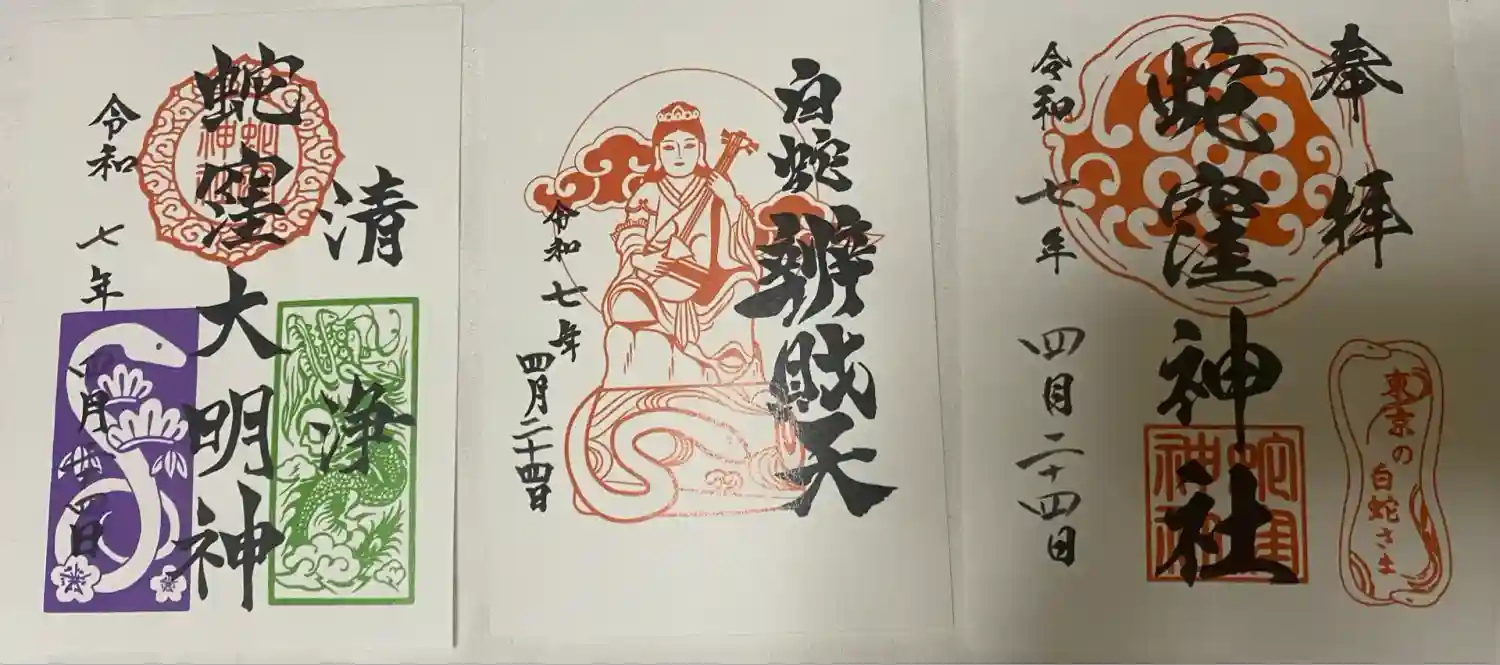 清浄
蛇窪大明神
令和七年四月二十四日
白蛇辨財天
令和七年
四月二十四日
奉拝
東京の白蛇さま
蛇窪神社
令和七年
四月二十四日